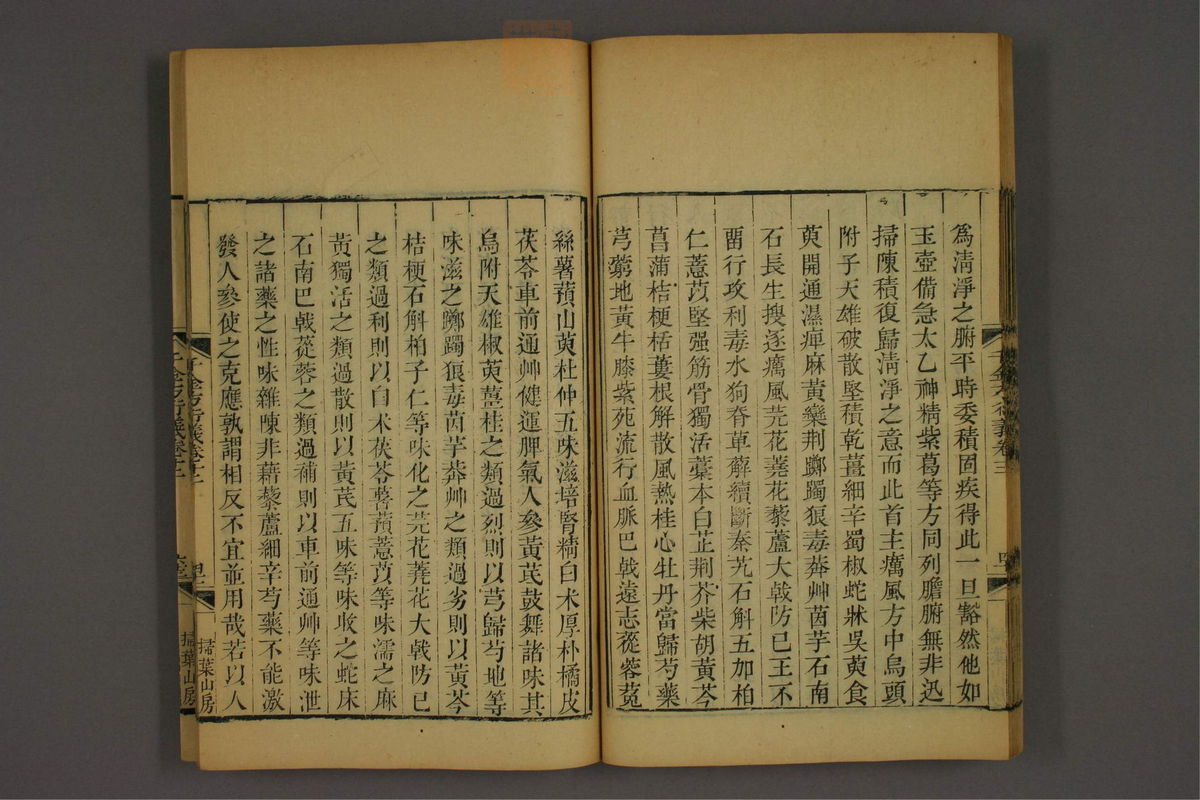 為淸淨之腑平時委積固疾得此一旦豁然他如
玉壺備急太乙神精紫葛等方同列膽腑無非迅
掃陳積復歸淸淨之意而此首主癘風方中烏頭
附子天雄破散堅積乾薑細辛蜀椒蛇牀吳萸食
萸開通濕痺麻黃欒荆躑躅狼毒莽艸茵芋石南
石長生搜逐癘風芫花蕘花藜蘆大戟防巳王不
畱行攻利毒水狗脊萆薢續斷秦艽石斛五加柏
仁薏苡堅强筋骨獨活藁本白芷荆芥柴胡黃芩
菖蒲桔梗栝蔞根解散風熱桂心牡丹當歸芍藥
芎藭地黃牛膝紫苑流行血脈巴戟遠志蓯蓉菟
絲薯蕷山萸杜仲五味滋培腎精白朮厚朴橘皮
茯苓車前通艸健運脾氣人參黃芪鼓舞諸味其
烏附天雄椒萸薑桂之類過烈則以芎歸芍地等
味滋之躑躅狼毒茵芋莽艸之類過劣則以黃芩
桔梗石斛柏子仁等味化之芫花蕘花大戟防巳
之類過利則以白朮茯苓薯蕷薏苡等味濡之麻
黃獨活之類過散則以黃芪五味等味收之蛇床
石南巴戟蓯蓉之類過補則以車前通艸等味泄
之諸藥之性味雜陳非藉藜蘆細辛芍藥不能激
發人參使之克應孰謂相反不宜並用哉若以人
掃葉山房
掃葉山房